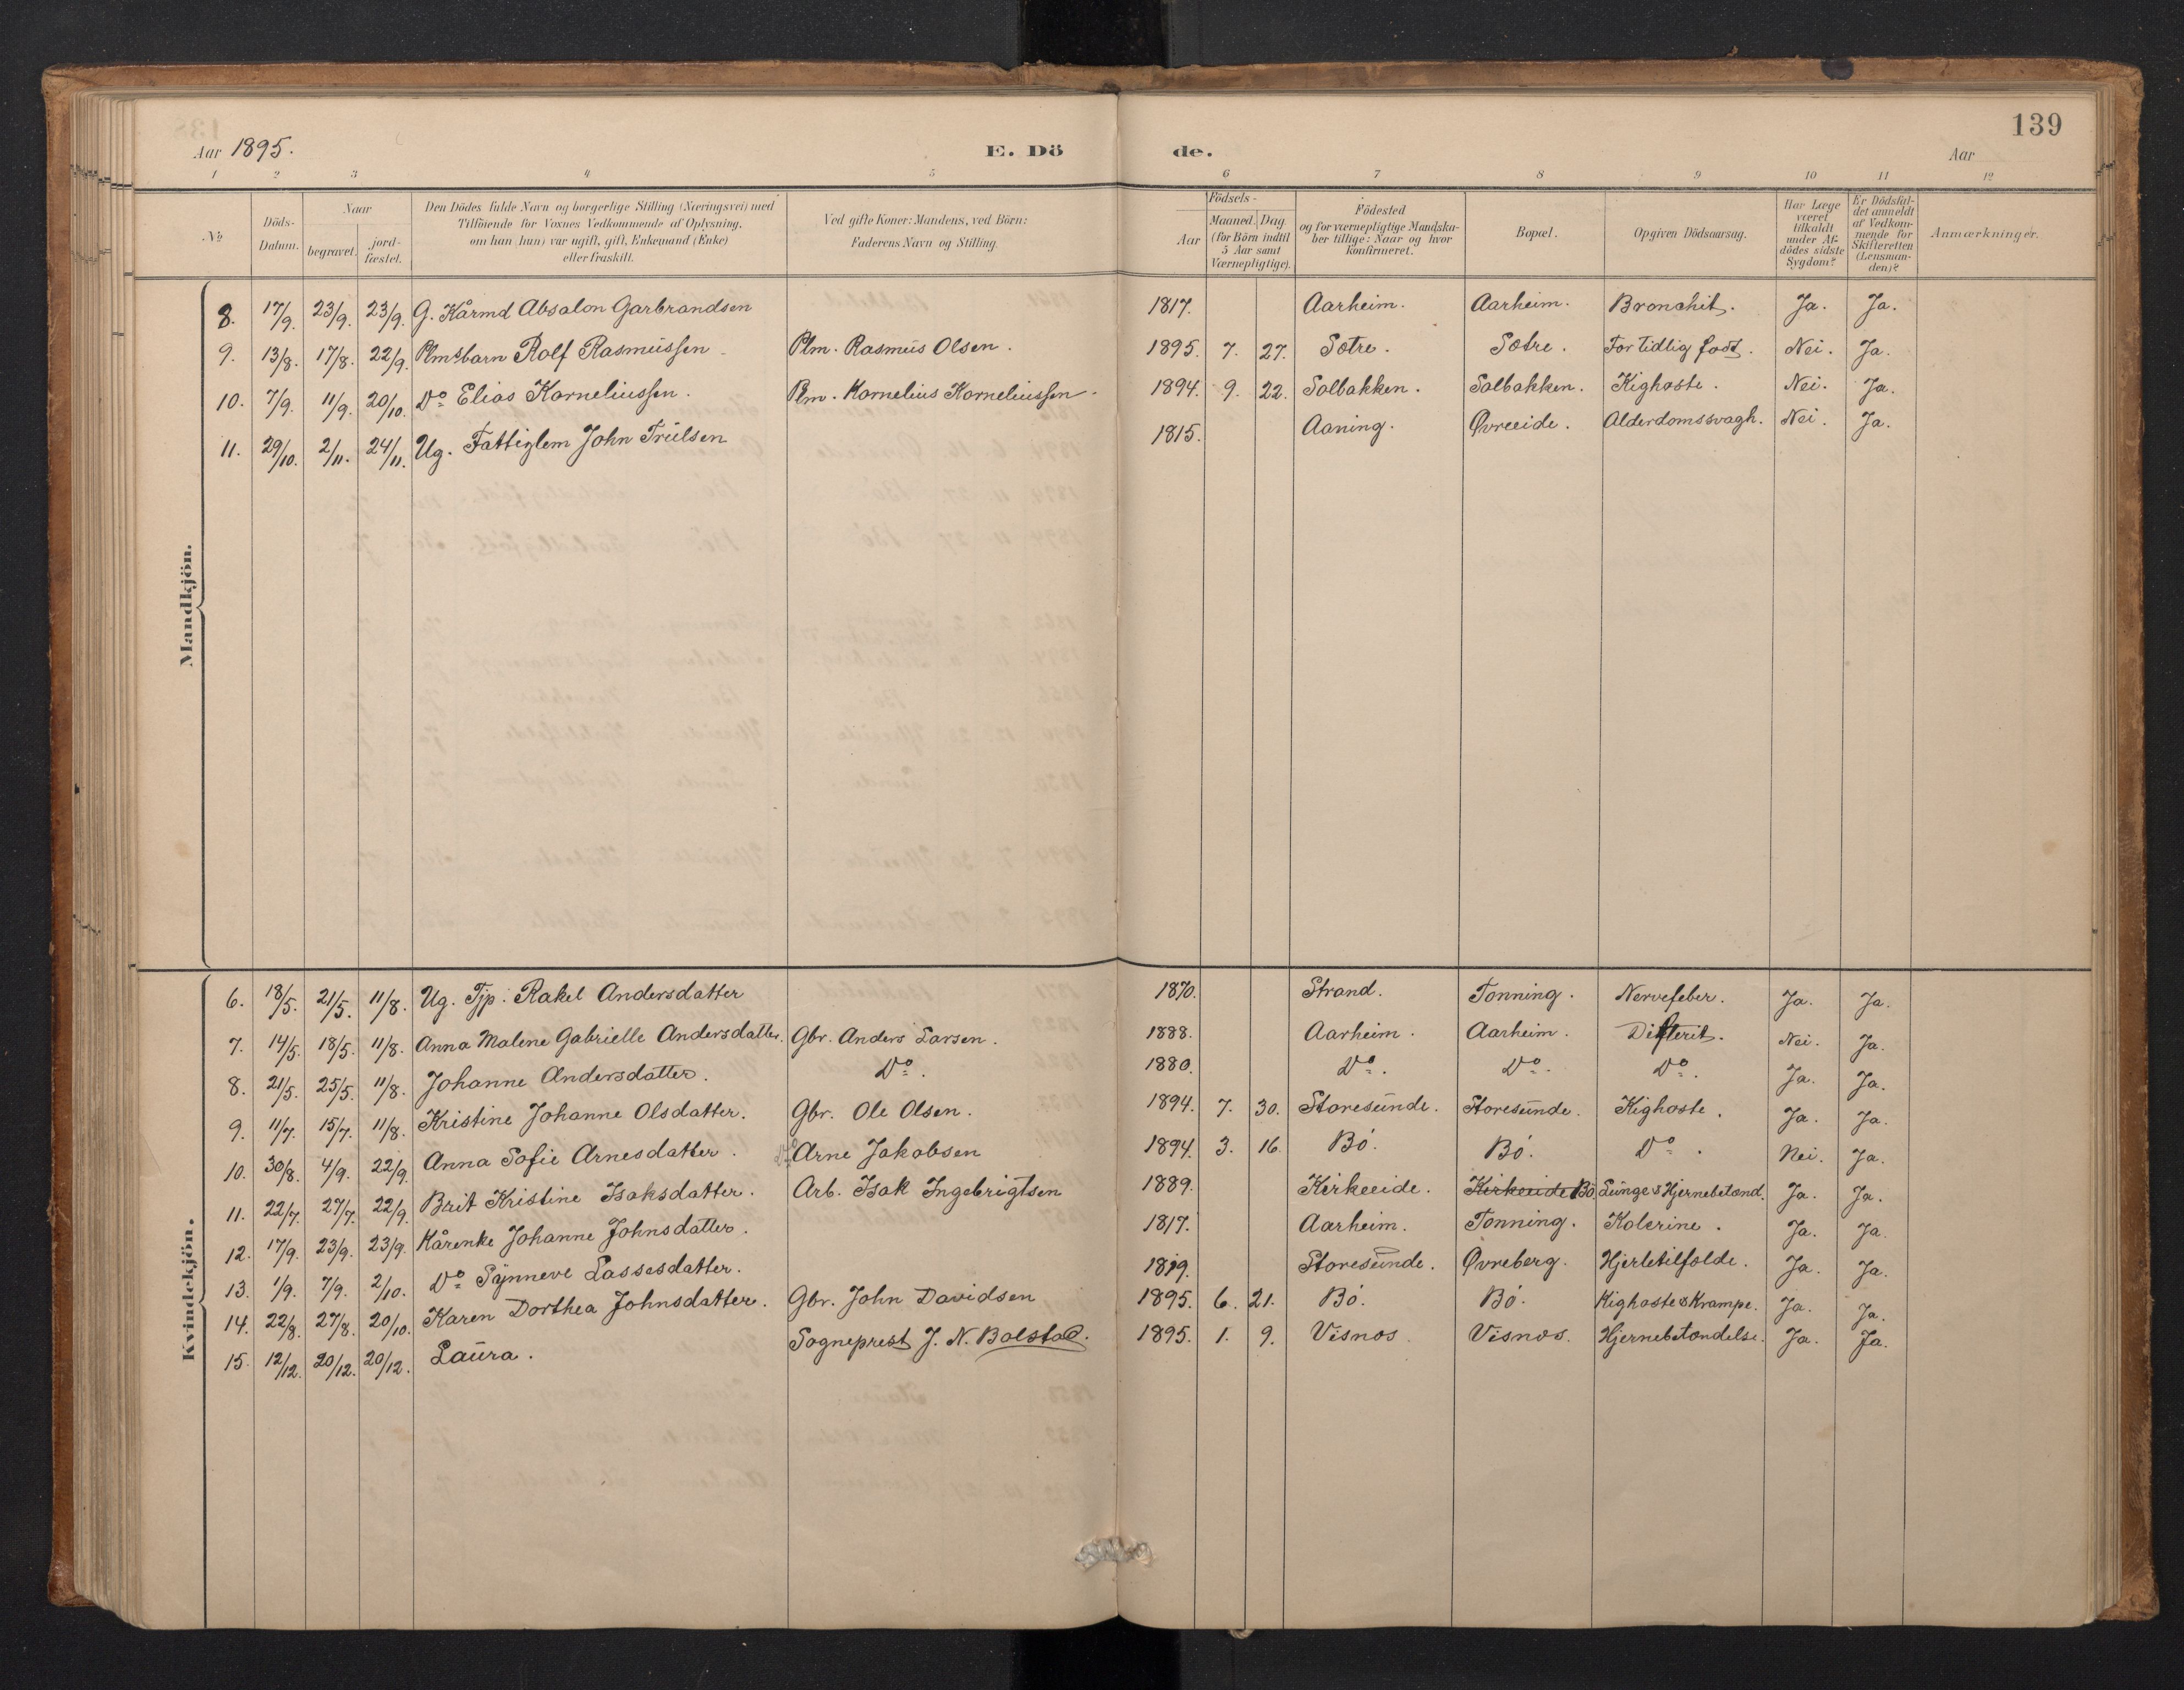 139
Aar 1895. E. Dö de. Aar
1 2 3 4 5 6 7 8 9 10 11 12
№ Döds-Datum. Naar begravet. jord-fæstet. Den Dödes fulde Navn og borgerlige Stilling (Næringsvei) med Tilföiende for Voxnes Vedkommende af Oplysning, om han (hun) var ugift, gift, Enkemand (Enke) eller fraskilt. Ved gifte Koner: Mandens, ved Börn: Faderens Navn og Stilling. Aar Födsels- Maaned. Dag. (for Börn indtil 5 Aar samt Værnepligtige). Födested og for værnepligtige Mandska-ber tillige: Naar og hvor Konfirmeret. Bopæl. Opgiven Dödsaarsag. Har Læge været tilkaldt under Af-dödes sidste Sygdom? Er Dödsfal-det anmeldt af Vedkom-mende for Skifteretten (Lensman-den)? Anmærkninger.
Mandkjön.
8. 17/9. 23/9. 23/9. G. Kårmd Absalon Garbrandsen 1817. Aarheim. Aarheim. Bronchit. Ja. Ja.
9. 13/8. 17/8. 22/9. Plmsbarn Rolf Rasmussen Plm. Rasmus Olsen. 1895. 7. 27. Sætre. Sætre. For tidlig født. Nei. Ja.
10. 7/9. 11/9. 20/10. Do Elias Korneliussen. Plm. Kornelius Korneliussen. 1894. 9. 22. Solbakken. Solbakken. Kighoste. Nei. Ja.
11. 29/10. 2/11. 24/11. Ug. Fattiglem John Trulsen 1815. Aaning. Øvreeide. Alderdomssvagh. Nei. Ja.
Kvindekjön.
6. 18/5. 21/5. 11/8. Ug. Tjp. Rakel Andersdatter 1870. Strand. Tonning. Nervefeber. Ja. Ja.
7. 14/5. 18/5. 11/8. Anna Malene Gabrielle Andersdatter. Gbr. Anders Larsen. 1888. Aarheim. Aarheim. Difterit. Nei. Ja.
8. 21/5. 25/5. 11/8. Johanne Andersdatter. Do. 1880. Do. Do. Do. Ja. Ja.
9. 11/7. 15/7. 11/8. Kristine Johanne Olsdatter. Gbr. Ole Olsen. 1894. 7. 30. Storesunde. Storesunde. Kighoste. Ja. Ja.
10. 30/8. 4/9. 22/9. Anna Sofie Arnesdatter. Do Arne Jakobsen 1894. 3. 16. Bö. Bö. Do. Nei. Ja.
11. 22/7. 27/7. 22/9. Brit Kristine Isaksdatter. Arb. Isak Ingebrigtsen 1889. Kirkeeide. Kirkeeide Bö Lunge & Hjernebetænd. Ja. Ja.
12. 17/9. 23/9. 23/9. Kårenke Johanne Johnsdatter. 1817. Aarheim. Tonning. Kolerine. Ja. Ja.
13. 1/9. 7/9. 2/10. Do Synneve Lassesdatter. 1819. Storesunde. Øvreberg. Hjertetilfælde. Ja. Ja.
14. 22/8. 27/8. 20/10. Karen Dorthea Johnsdatter. Gbr. John Davidsen 1895. 6. 21. Bö. Bö. Kighoste & Krampe. Ja. Ja.
15. 12/12. 20/12. 20/12. Laura. Sogneprest J. N. Bolstad. 1895. 1. 9. Visnes. Visnes. Hjernebetændelse. Ja. Ja.